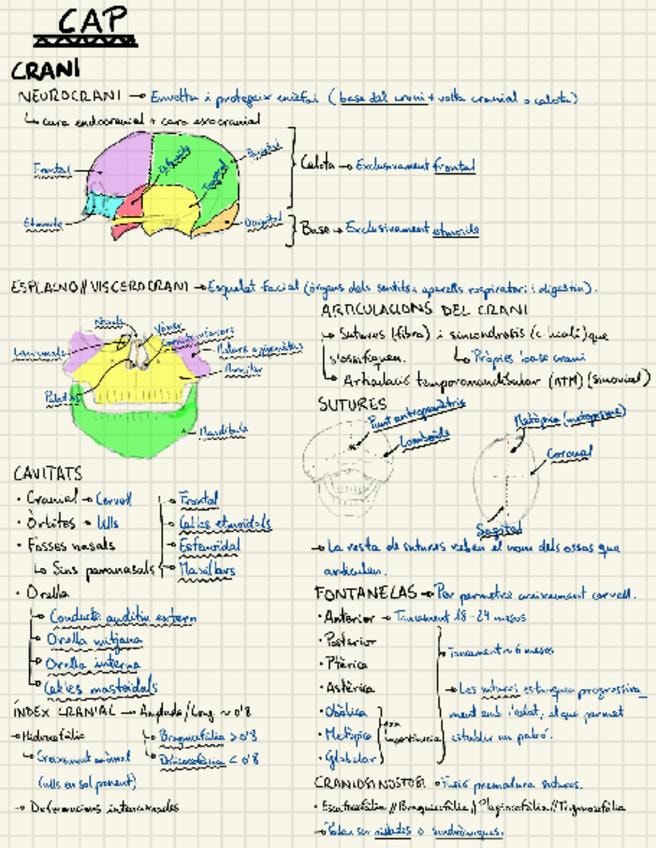 CAP
CRANI
NEUROCRANI → Envolta i protegeix encèfal (base del crani + volta cranial o calota)
↳ cara endocranial + cara exocranial
Frontal
Esfenoide
Temporal
Parietal
Etmoide
Occipital
Calota → Exclusivament frontal
Base → Exclusivament etmoide
ESPLACNO//VISCEROCRANI → Esquelet facial (òrgans dels sentits, aparells respiratori i digestiu).
Nasals
Vomer
Lacrimals
Maxil·lar
Palatins
Mandíbula
ARTICULACIONS DEL CRANI
↳ Sutures (fibra) i sincondrosis (c. hialí) que
s'ossifiquen.
↳ Pròpies base crani
↳ Articulació temporomandibular (ATM) (sinovial)
SUTURES
Lambdoide
Metòpica
Coronal
Sagital
→ La resta de sutures reben el nom dels ossos que
articulen.
CAVITATS
· Cranial → Cervell
· Òrbites → Ulls
· Fosses nasals
↳ Sins paranasals
Frontal
Cel·les etmoïdals
Esfenoïdal
Maxil·lars
· Orella
Conducte auditiu extern
Orella mitjana
Orella interna
Cel·les mastoïdals
ÍNDEX CRANIAL → Amplada/Long. ~ 0'8
→ Hidrocefàlia
↳ Creixement anòmal
(ulls en sol ponent)
Braquicefàlia > 0'8
Dolicocefàlia < 0'8
→ Deformacions intencionades
FONTANELAS → Per permetre creixement cervell.
· Anterior → Tancament 18-24 mesos
· Posterior
· Ptèrica
· Astèrica
· Obèlica
· Metòpica
· Glabelar
importància
Tancament ~ 6 mesos
→ Les sutures es tanquen progressiva_
ment amb l'edat, el que permet
establir un patró.
CRANIOSINOSTOSI → Fusió prematura sutures.
· Escafocefàlia // Braquicefàlia // Plagiocefàlia // Trigonocefàlia
→ Poden ser aïllades o sindròmiques.